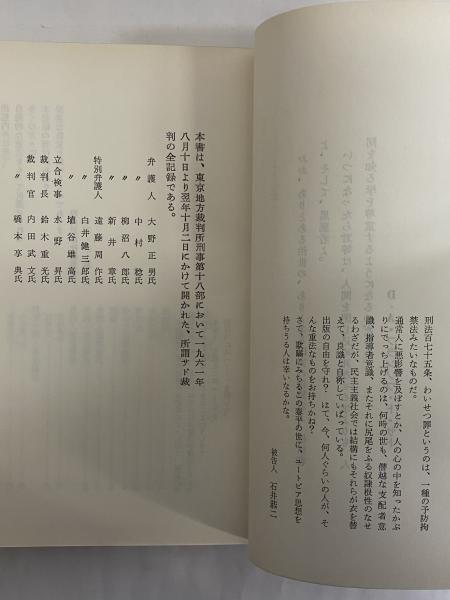 刑法百七十五条、わいせつ罪というのは、一種の予防拘
禁法みたいなものだ。
通常人に悪影響を及ぼすとか、人の心の中を知ったかぶ
りにでっち上げるのは、何時の世も、僭越な支配者意
識、指導者意識、またそれに尻尾をふる奴隷根性のなせ
るわざだが、民主主義社会では結構にもそれらが衣を替
えて、良識と自称していばっている。
出版の自由を守れ? はて、今、何人ぐらいの人が、そ
んな重法なものをお持ちかね?
さて、欺瞞にみちるこの泰平の世に、ユートピア思想を
持ちうる人は幸いなるかな。
被告人 石井恭二
本書は、東京地方裁判所刑事第十八部において一九六一年
八月十日より翌年十月二日にかけて開かれた、所謂サド裁
判の全記録である。
弁護人 大野正男氏
〃 中村稔氏
〃 柳沼八郎氏
〃 新井章氏
特別弁護人 遠藤周作氏
〃 白井健三郎氏
〃 埴谷雄高氏
立合検事 水野昇氏
裁判長 鈴木重光氏
裁判官 内田武文氏
〃 橋本享典氏